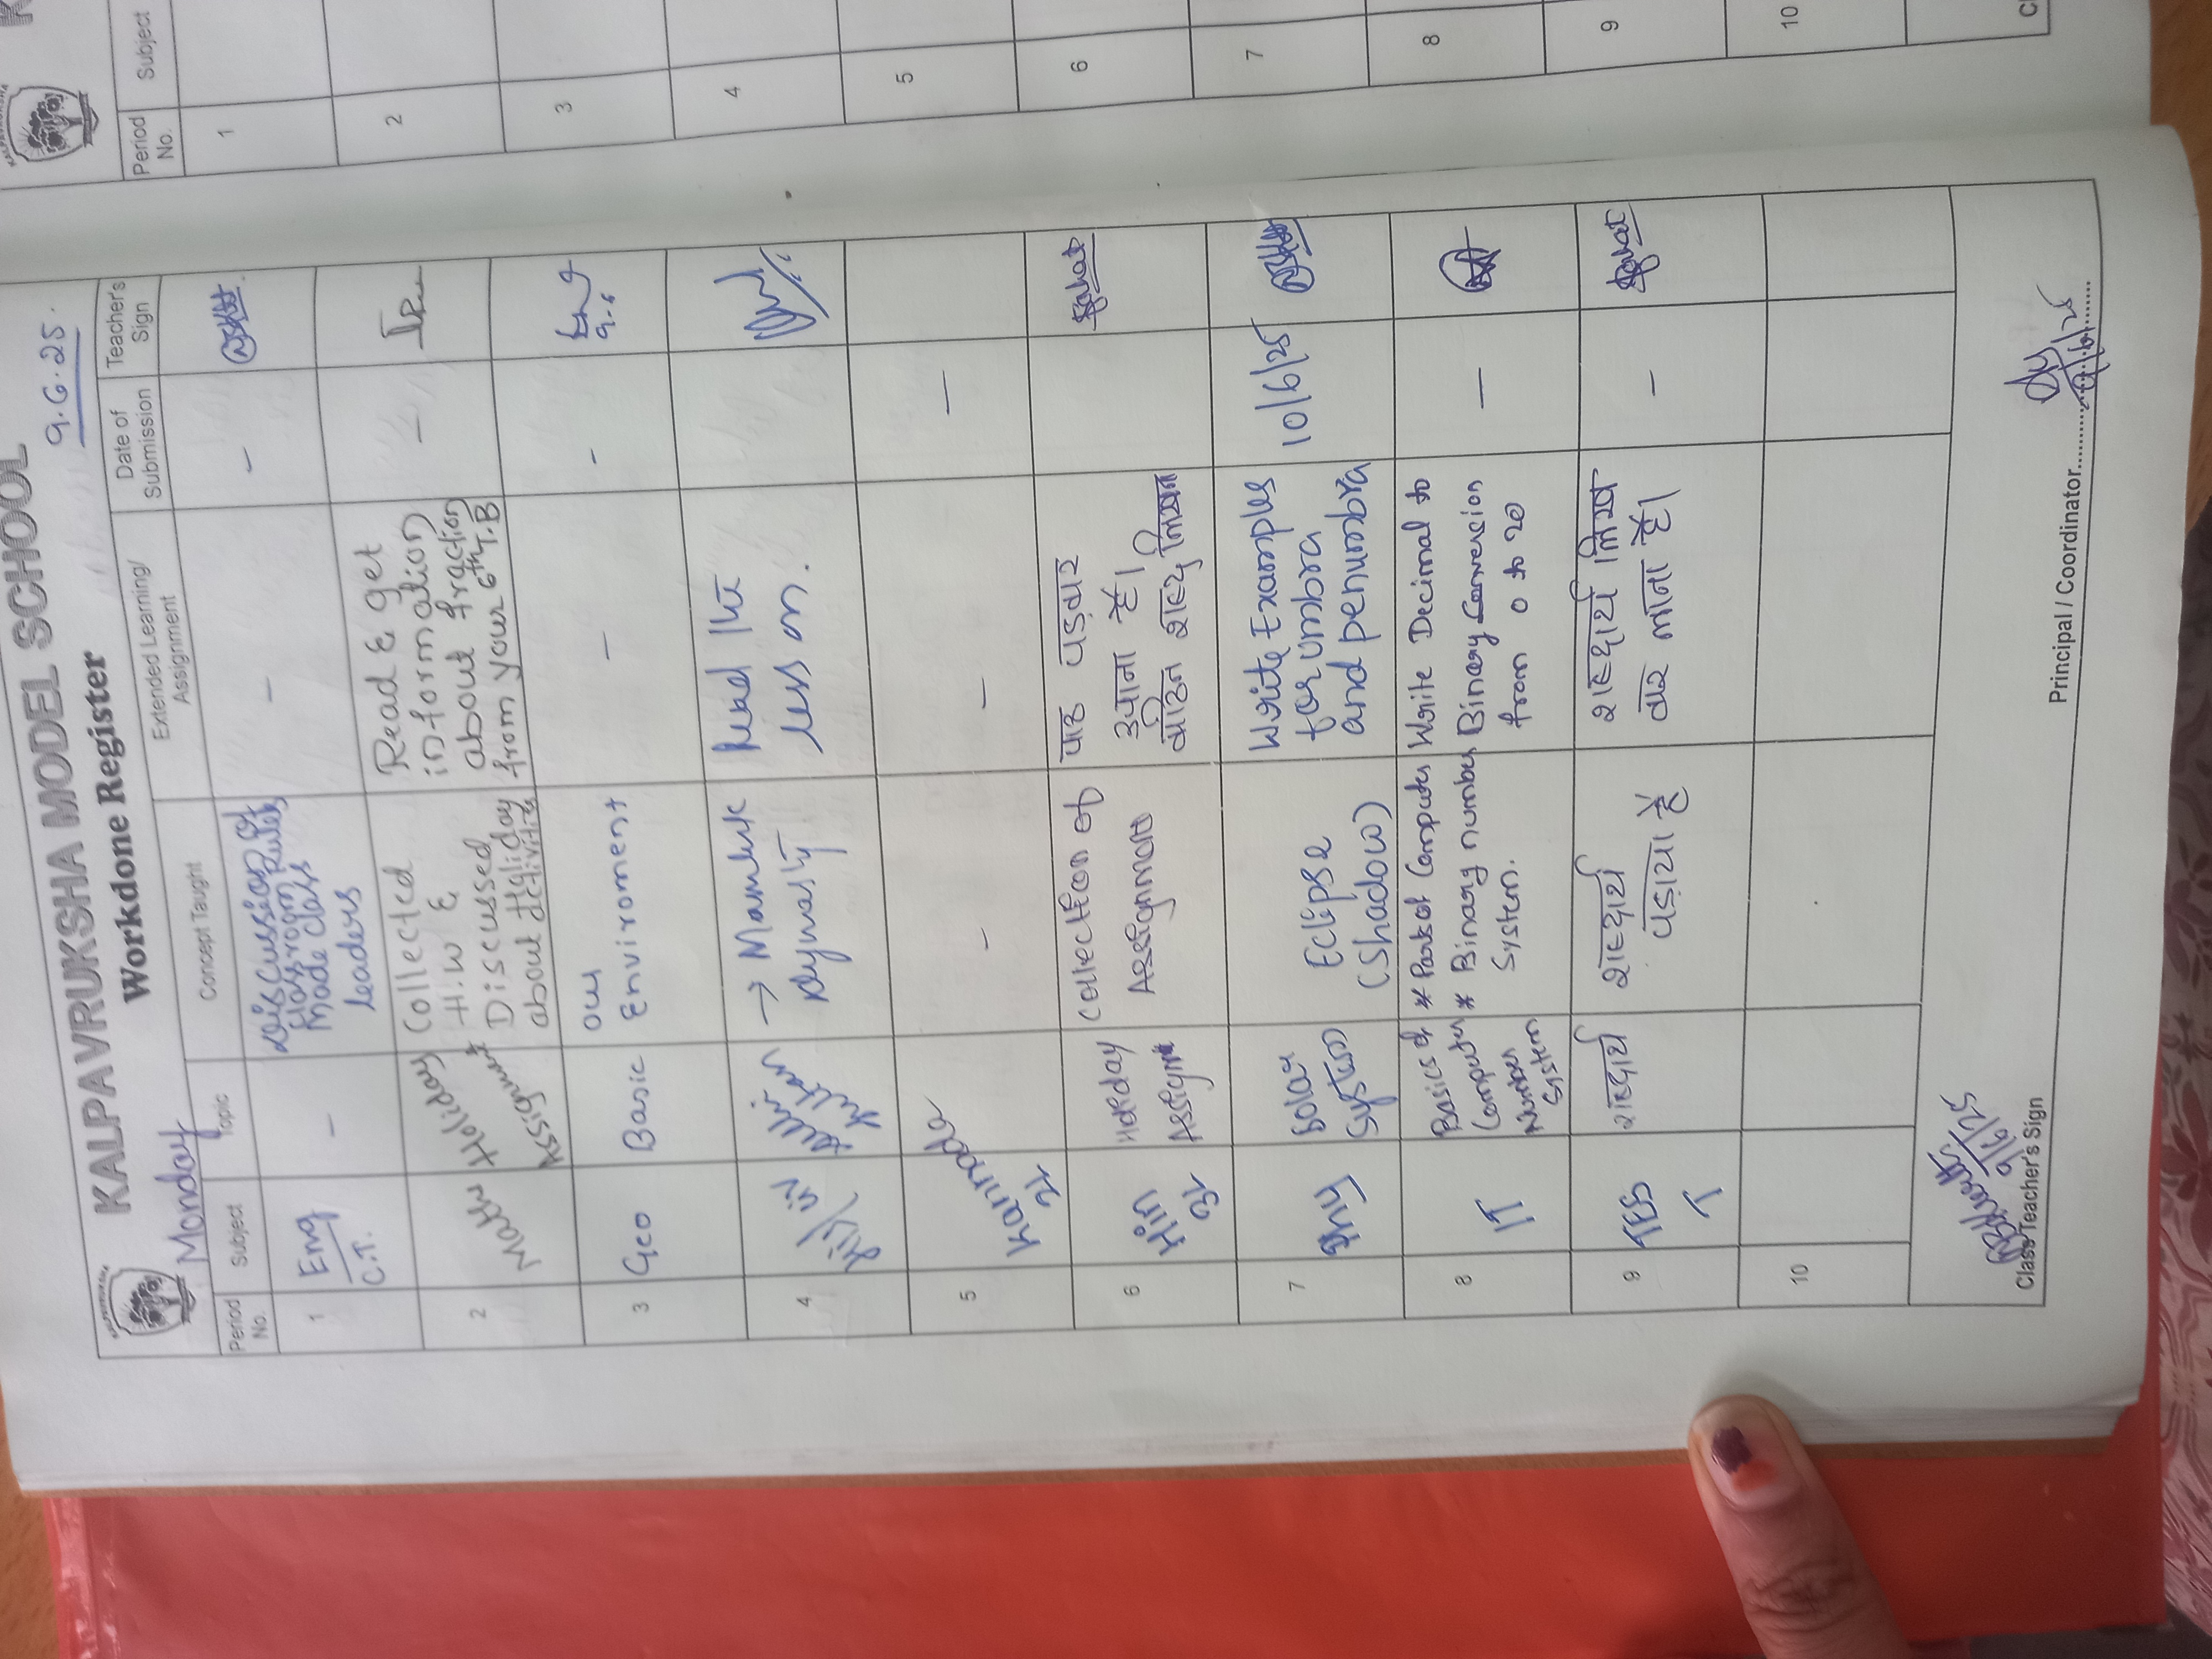 KALPAVRUKSHA MODEL SCHOOL
Workdone Register
Monday
9.6.25.
Period No.
Subject
Topic
Concept Taught
Extended Learning/ Assignment
Date of Submission
Teacher's Sign
1
Eng
C.T.
-
Discussion of
Classroom Rules
Made class
leaders
-
-
2
Maths
Holiday
Assignment
Collected
H.W &
Discussed
about Holiday
activities
Read & get
information
about fraction
from your 6th T.B
-
3
Geo
Basic
our
Enviroment
-
-
9.6
4
→ Mamluk
dynasty
Read the
lesson.
5
Kannada
2L
-
-
-
6
Hin
Holiday
Collection of
Assignment
पाठ पड़कर
आना है।
कठिन शब्द
7
Phy
Solar
System
Eclipse
(Shadow)
Write Examples
for umbra
and penumbra
10/6/25
8
IT
Basics of
Computer
Number
System
* Part of Computer
* Binary number
System.
Write Decimal to
Binary Conversion
from 0 to 20
-
9
शब्दार्थ
शब्दार्थ
पड़ाया है
शब्दार्थ लिख
कर लाना है।
-
10
9/6/25
Class Teacher's Sign
Principal / Coordinator
Period No.
Subject
1
2
3
4
5
6
7
8
9
10